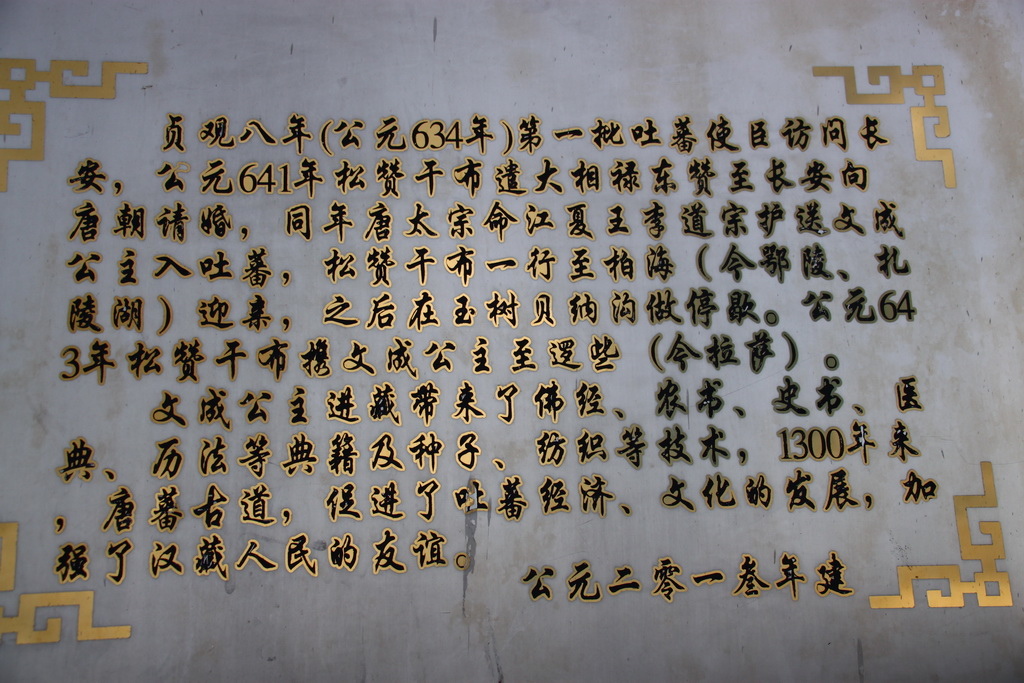 贞观八年(公元634年)第一批吐蕃使臣访问长
安，公元641年松赞干布遣大相禄东赞至长安向
唐朝请婚，同年唐太宗命江夏王李道宗护送文成
公主入吐蕃，松赞干布一行至柏海（今鄂陵、札
陵湖）迎亲，之后在玉树贝纳沟做停歇。公元64
3年松赞干布携文成公主至逻些（今拉萨）。
文成公主进藏带来了佛经、农书、史书、医
典、历法等典籍及种子、纺织等技术，1300年来
，唐蕃古道，促进了吐蕃经济、文化的发展，加
强了汉藏人民的友谊。
公元二零一叁年建